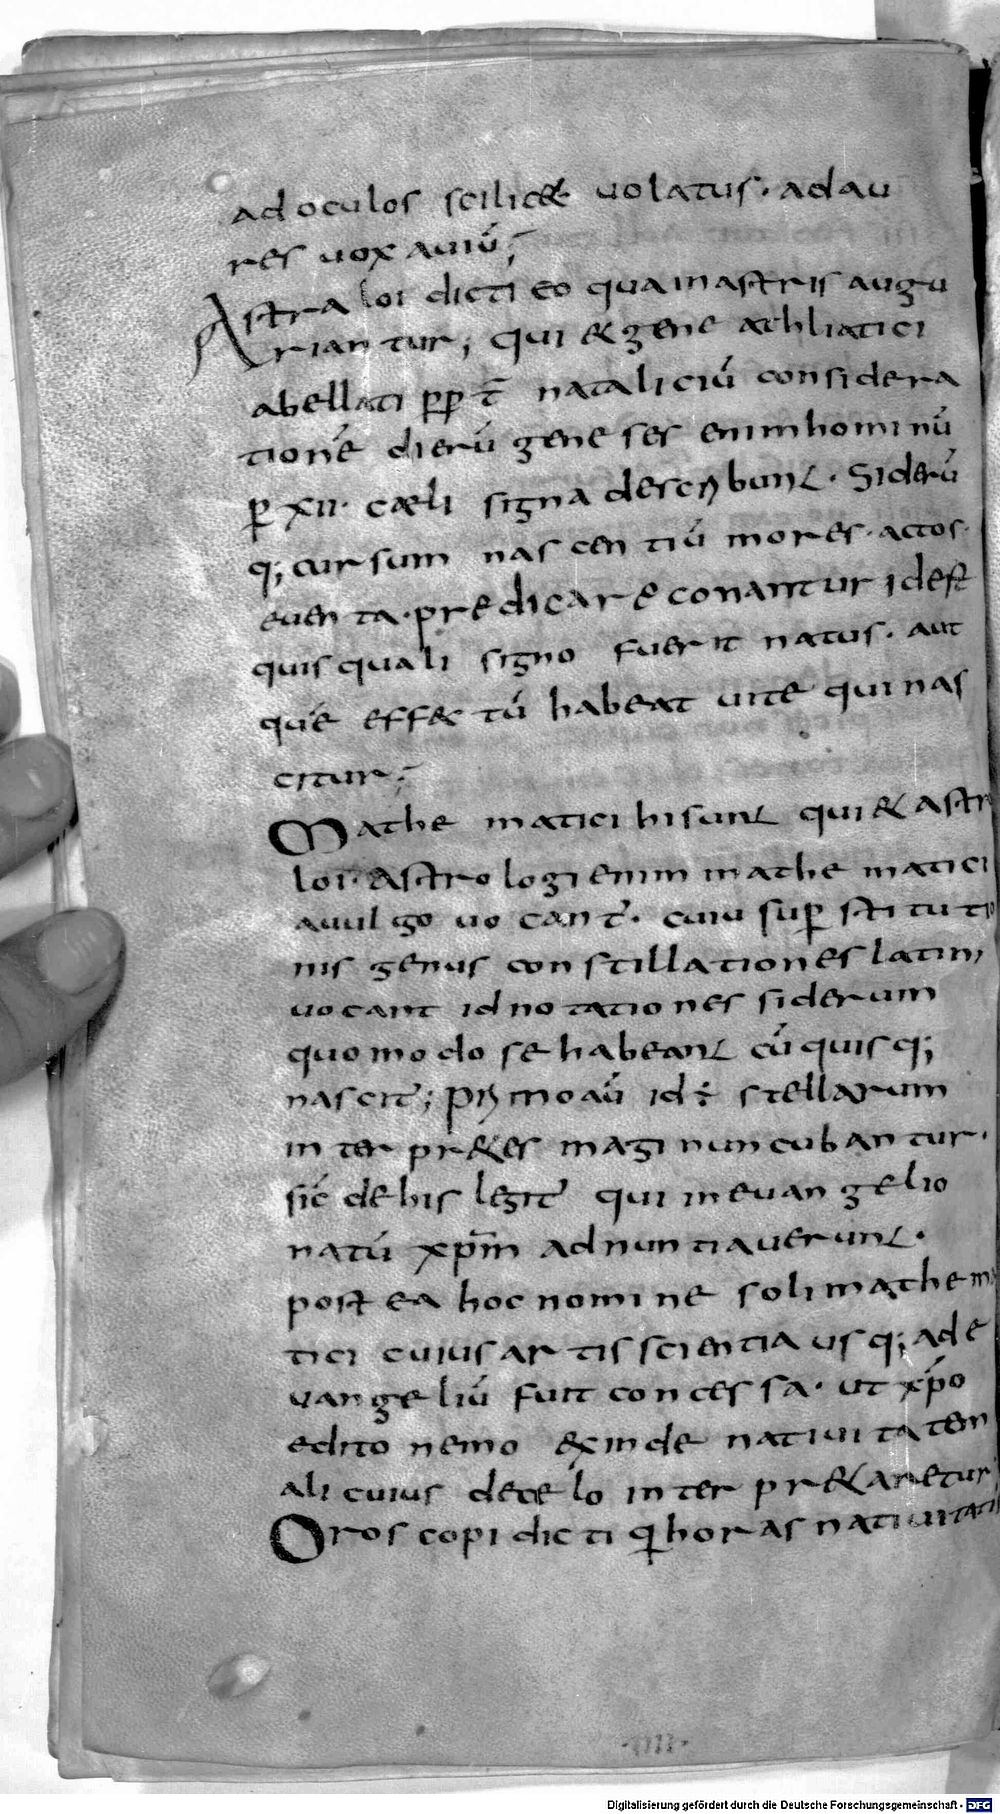 ad oculos scilic& uolatus· adau
res uox auiū;
Astraloi dicti eo qua in astris augu
riantur; qui & gene athliatici
abellati ꝓp t̄ nataliciū considera
tionē dierū geneses enim hominū
ꝑ xii· cæli signa describunt· Siderū
q; cursum nascentiū mores· actos·
euenta· predicare conantur idest
quis quali signo fuerit natus· aut
quē effectū habeat uite qui nas
citur;
Mathematici hi sunt qui & astro
loi· Astrologi enim mathematici
a uulgo uocant̄· cuiu suꝑstitutio
nis genus constillationes latini
uocant id notationes siderum
quomodo se habeant cū quisq;
nascit̄; Primo aū id ÷ stellarum
interpr&es magi nuncubantur·
sic̄ de his legit̄ qui in euangelio
natū xp̄m adnuntiauerunt·
postea hoc nomine soli mathema
tici cuius artis scientia usq; ad e
uangeliū fuit concessa· ut xp̄o
edito nemo exinde natiuitatem
alicuius de celo interpr&aretur
Oroscopi dicti ꝗ horas natiuitatis
·IIII·
Digitalisierung gefördert durch die Deutsche Forschungsgemeinschaft - DFG